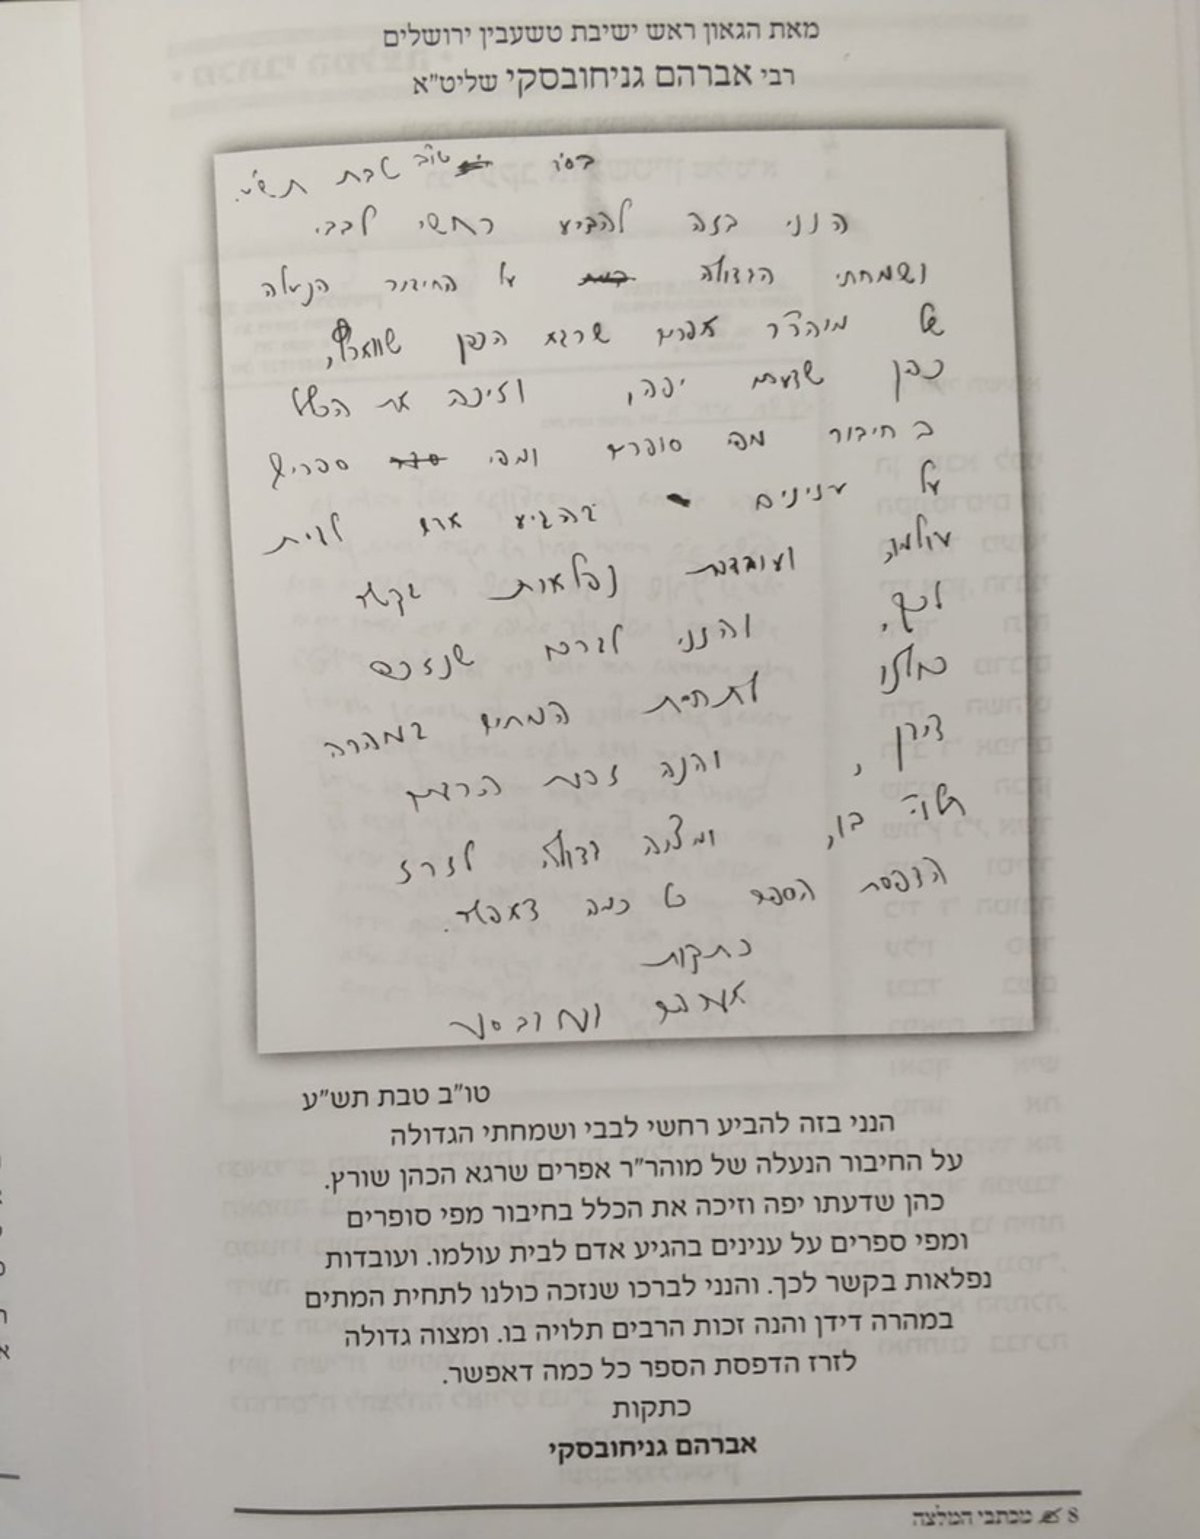 מאת הגאון ראש ישיבת טשעבין ירושלים
רבי אברהם גניחובסקי שליט"א
בס"ד טו"ב טבת תש"ע.
הנני בזה להביע רחשי לבבי
ושמחתי הגדולה על החיבור הנעלה
של מוהר"ר אפרים שרגא הכהן שווארץ,
כהן שדעתו יפה, וזיכה את הכלל
בחיבור מפי סופרים ומפי ספרים
על ענינים בהגיע אדם לבית
עולמו, ועובדות נפלאות בקשר
לכך, והנני לברכו שנזכה
כולנו לתחית המתים במהרה
דידן, והנה זכות הרבים
תלויה בו, ומצוה גדולה לזרז
הדפסת הספר כל כמה דאפשר.
כתקות
אברהם גניחובסקי
טו"ב טבת תש"ע
הנני בזה להביע רחשי לבבי ושמחתי הגדולה
על החיבור הנעלה של מוהר"ר אפרים שרגא הכהן שורץ.
כהן שדעתו יפה וזיכה את הכלל בחיבור מפי סופרים
ומפי ספרים על ענינים בהגיע אדם לבית עולמו. ועובדות
נפלאות בקשר לכך. והנני לברכו שנזכה כולנו לתחית המתים
במהרה דידן והנה זכות הרבים תלויה בו. ומצוה גדולה
לזרז הדפסת הספר כל כמה דאפשר.
כתקות
אברהם גניחובסקי
8 מכתבי המלצה